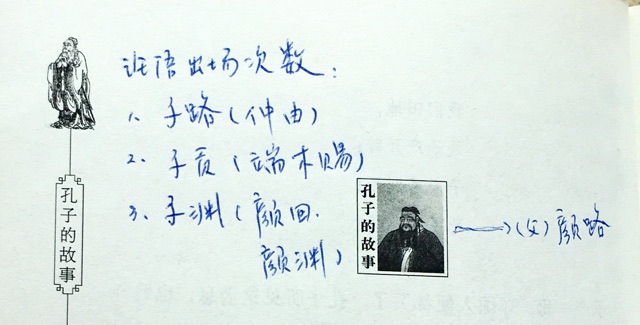 论语出场次数:
1、子路(仲由)
2、子贡(端木赐)
3、子渊(颜回.
颜渊)
→(父)颜路
孔子的故事
孔子的故事